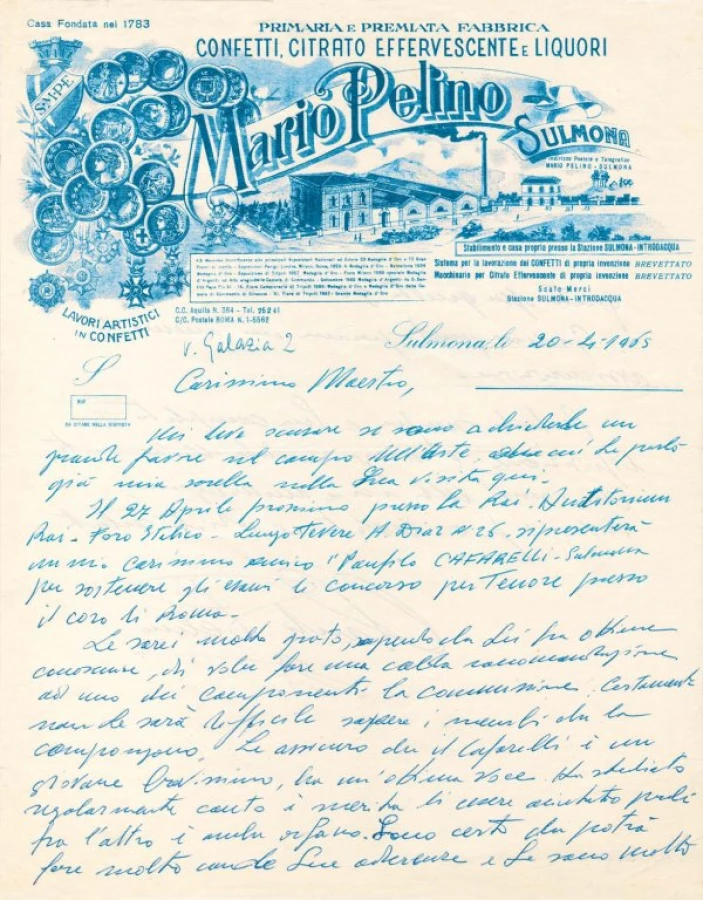 Casa Fondata nel 1783
PRIMARIA E PREMIATA FABBRICA
CONFETTI, CITRATO EFFERVESCENTE E LIQUORI
S.M.P.E.
Mario Pelino
SULMONA
Indirizzo Postale e Telegrafico
MARIO PELINO - SULMONA
Stabilimento e casa propria presso la Stazione SULMONA - INTRODACQUA
Sistema per la lavorazione dei CONFETTI di propria invenzione BREVETTATO
Macchinario per Citrato Effervescente di propria invenzione BREVETTATO
Scalo Merci
Stazione SULMONA - INTRODACQUA
LAVORI ARTISTICI
IN CONFETTI
C.C. Aquila N. 364 - Tel. 25241
C/C. Postale ROMA N. 1-5562
v. Galazia 2
Sulmona, lì 20-4-1965
S
Rif.
DA CITARE NELLA RISPOSTA
Carissimo Maestro,
Mi deve scusare se sono a chiederle un
grande favore nel campo dell'Arte, Le parlò
già mia sorella nella Sua visita qui.
Il 27 Aprile prossimo presso la Rai - Auditorium
Rai - Foro Italico - Lungo Tevere A. Diaz N 26 - si presenterà
un mio carissimo amico "Panfilo CAFARELLI - Sulmona
per sostenere gli esami di concorso per Tenore presso
il coro di Roma -
Le sarei molto grato, sapendo che Lei ha ottime
conoscenze, di voler fare una calda raccomandazione
ad uno dei componenti la commissione. Certamente
non Le sarà difficile sapere i membri che la
compongono. Le assicuro che il Cafarelli è un
giovane bravissimo, ha un'ottima voce. Ha studiato
regolarmente canto e merita di essere aiutato perché
fra l'altro è anche orfano. Sono certo che potrà
fare molto con le Sue aderenze e Le sono molto